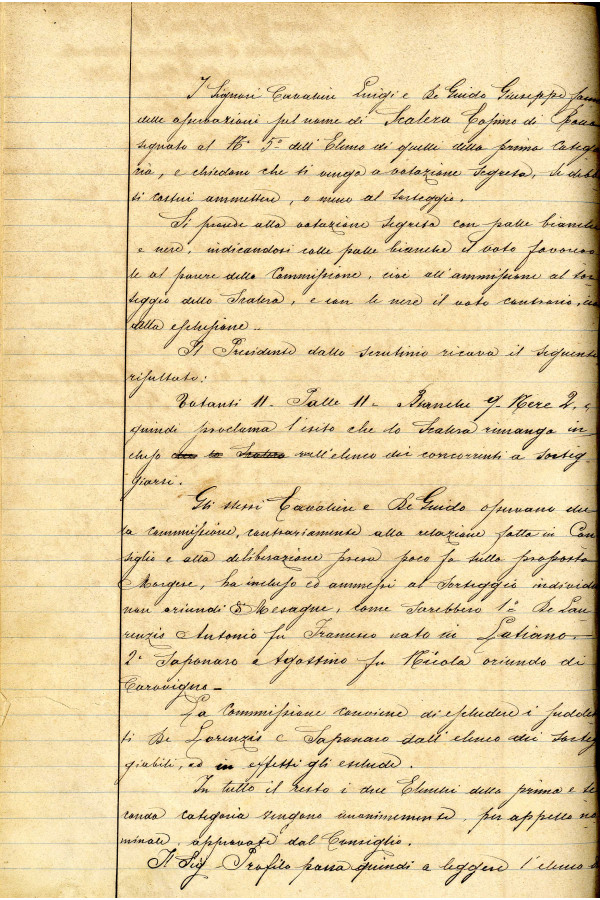 I Signori Cavaliere Luigi e De Guido Giuseppe fanno
delle osservazioni sul nome di Scalera Cosimo di
segnato al N.° 5° dell'Elenco di quelli della prima catego
ria, e chiedono che si venga a votazione segreta, se deb
basi costui ammettere, o meno al sorteggio.
Si procede alla votazione segreta con palle bianche
e nere, indicandosi colle palle bianche il voto favorevo
le al parere della Commissione, cioè all'ammissione al sor
teggio dello Scalera, e con le nere il voto contrario,
della esclusione..
Il Presidente dallo scrutinio ricava il seguente
risultato:
Votanti 11 - Palle 11 - Bianche 9 - Nere 2, e
quindi proclama l'esito che lo Scalera rimanga in
cluso nell'elenco dei concorrenti a sorteg
giarsi.
Gli stessi Cavaliere e De Guido osservano che
la commissione, contrariamente alla relazione fatta in Con
siglio e alla deliberazione presa poco fa sulla proposta
Morgese, ha incluso ed ammessi al sorteggio individui
non oriundi di Mesagne, come sarebbero 1° De Lau
renzis Antonio fu Francesco nato in Latiano -
2° Saponaro Agostino fu Nicola oriundo di
Carovigno -
La Commissione conviene di escludere i suddet
ti De Lorenzis e Saponaro dall'elenco dei sorteg
giabili, ed in effetti gli esclude.
In tutto il resto i due Elenchi della prima e se
conda categoria vengono unanimemente, per appello no
minale, approvate dal Consiglio.
Il Sig. Profilo passa quindi a leggere l'elenco